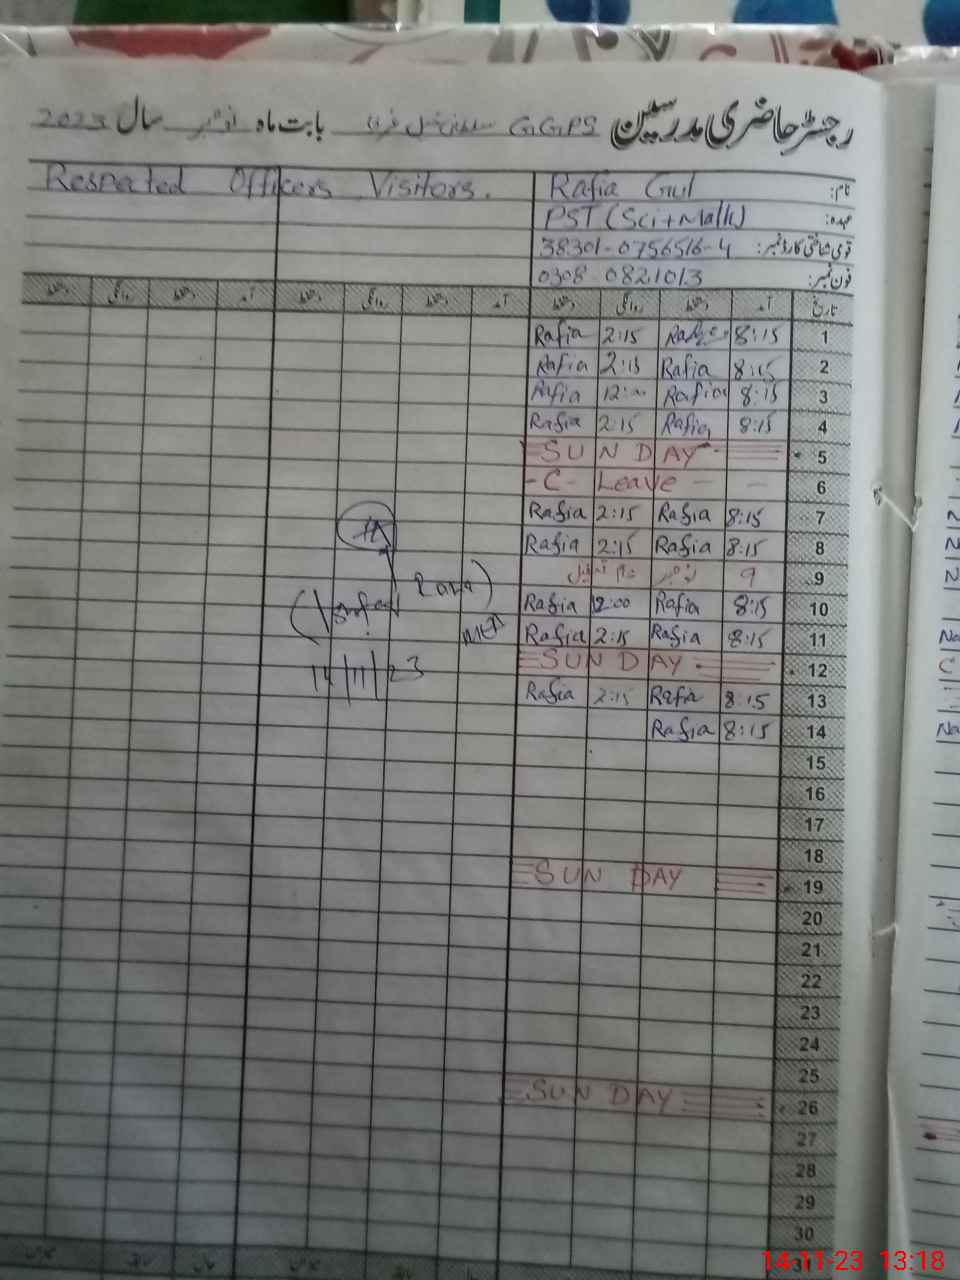 رجسٹر حاضری مدرسین G.G.P.S بابت ماہ نومبر سال 2023
نام: Rafia Gul
Respected Officers Visitors.
عہدہ: PST (Sci+Math)
قومی شناختی کارڈ نمبر: 38301-0756516-4
فون نمبر: 0308 0821013
تاریخ آمد دستخط روانگی دستخط آمد دستخط روانگی دستخط آمد دستخط روانگی دستخط
1 8:15 Rafia 2:15 Rafia
2 8:15 Rafia 2:15 Rafia
3 8:15 Rafia 12:00 Rafia
4 8:15 Rafia 2:15 Rafia
5 SUNDAY
6 - C - Leave -
7 8:15 Rafia 2:15 Rafia
8 8:15 Rafia 2:15 Rafia
9 9 نومبر
10 8:15 Rafia 12:00 Rafia
11 8:15 Rafia 2:15 Rafia
12 SUNDAY
13 8:15 Rafia 2:15 Rafia
14 8:15 Rafia
15
16
17
18
19 SUNDAY
20
21
22
23
24
25
26 SUNDAY
27
28
29
30
14/11/23
14-11-23 13:18